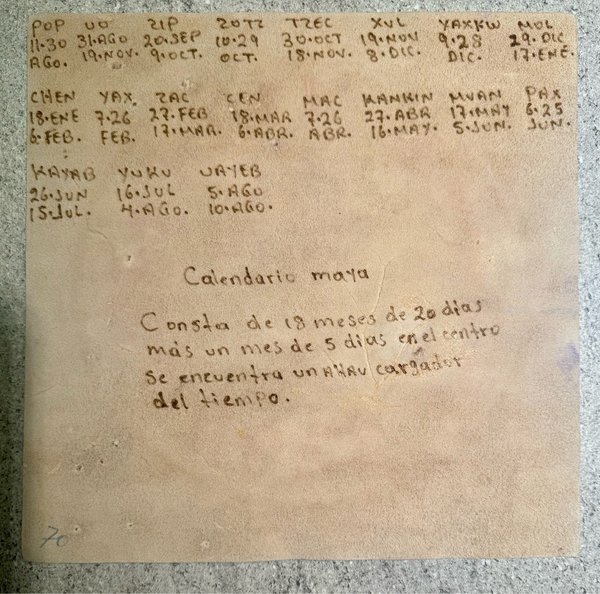 POP UO ZIP ZOTZ TZEC XUL YAXKIN MOL
11·30 31·AGO 20·SEP 10·29 30·OCT 19·NOV 9·28 29·DIC
AGO. 19·NOV. 9·OCT. OCT. 18·NOV. 8·DIC. DIC. 17·ENE.
CHEN YAX ZAC CEN MAC KANKIN MUAN PAX
18·ENE 7·26 27·FEB 18·MAR 7·26 27·ABR 17·MAY 6·25
6·FEB. FEB. 17·MAR. 6·ABR. ABR. 16·MAY. 5·JUN. JUN.
KAYAB YUKU UAYEB
26·JUN 16·JUL 5·AGO
15·JUL. 4·AGO. 10·AGO.
Calendario maya
Consta de 18 meses de 20 dias
más un mes de 5 dias en el centro
se encuentra un AHAU cargador
del tiempo.
70